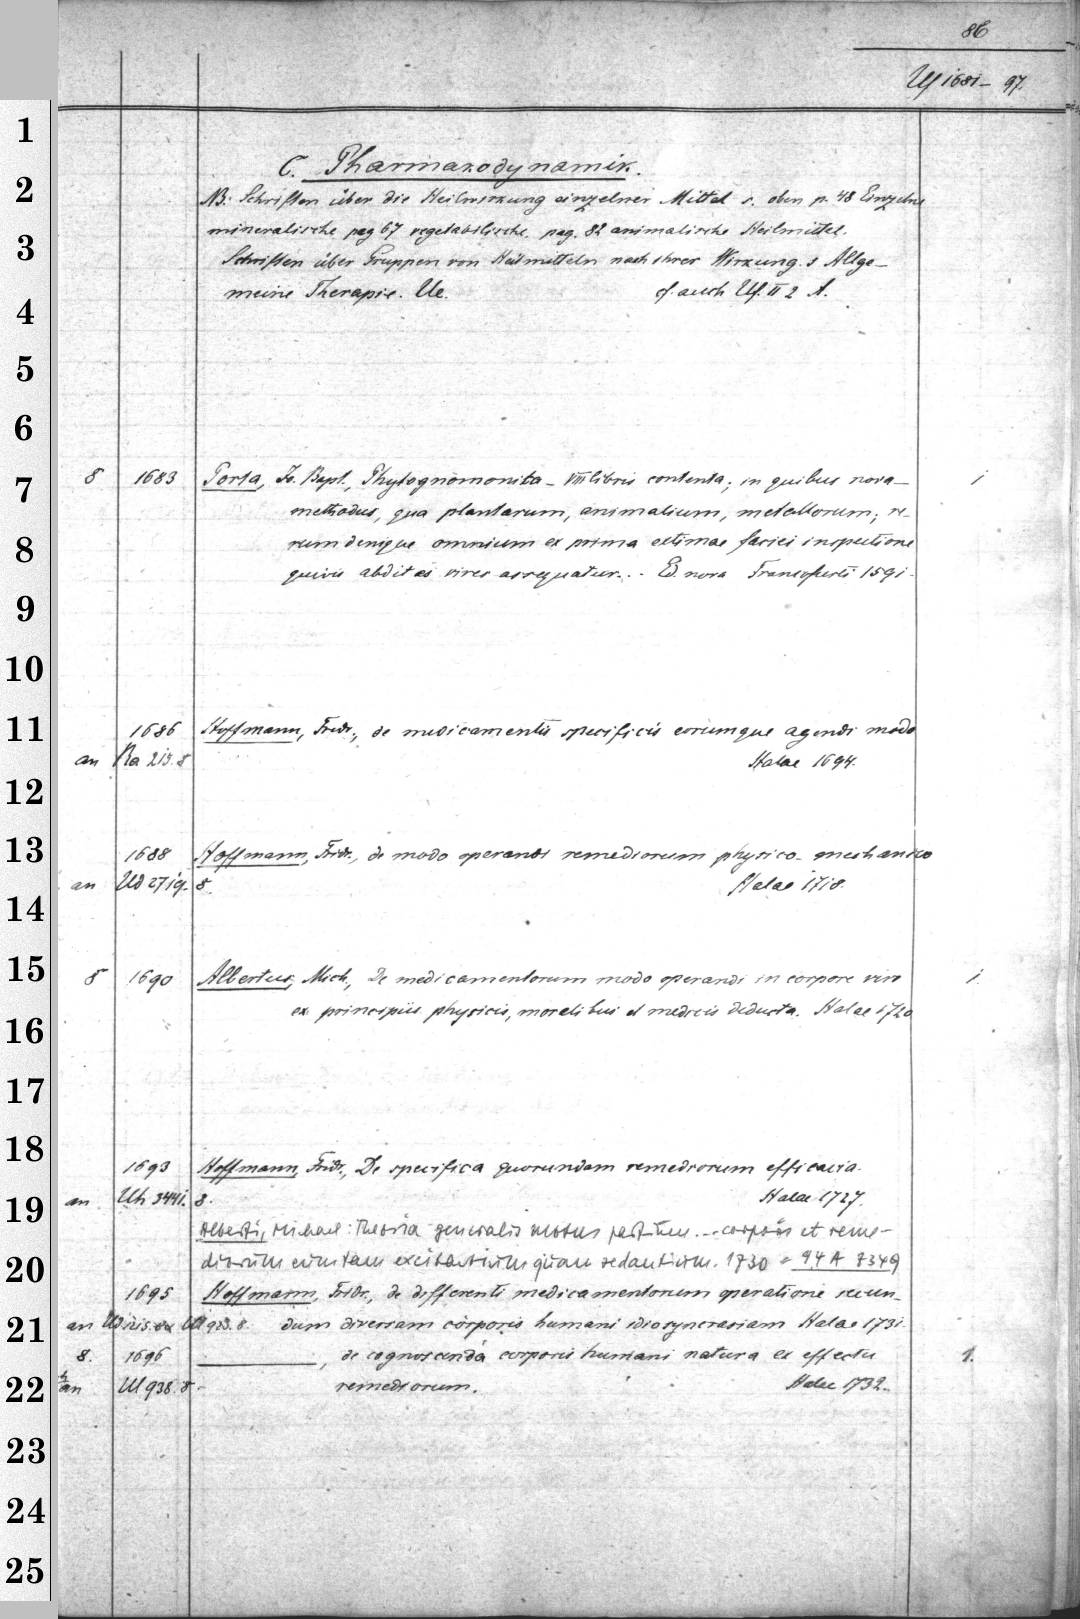 86
Uf 1681-97
1
C. Pharmakodynamik.
2
NB. Schriften über die Heilwirkung einzelner Mittel s. oben p. 48 Einzelne
mineralische pag 67 vegetabilische. pag. 82 animalische Heilmittel.
3
Schriften über Gruppen von Heilmitteln nach ihrer Wirkung. s Allge-
4
meine Therapie. Ue. cf. auch Uf. II 2 A.
5
6
7
8 1683 Porta, Jo. Bapt., Phytognomonica - VIII libris contenta; in quibus nova 1
methodus, qua plantarum, animalium, metallorum; re-
8
rum denique omnium ex prima extimae faciei inspectione
quivis abditas vires assequatur... Ed. nova Francofurti 1591.
9
10
11
1686 Hoffmann, Fridr., de medicamentis specificis eorumque agendi modo
an Ra 213. 8 Halae 1694.
12
13
1688 Hoffmann, Fridr., de modo operandi remediorum physico-mechanico
an Ud 2719. 8. Halae 1718.
14
15
8 1690 Albertus, Mich., De medicamentorum modo operandi in corpore vivo 1.
16
ex principiis physicis, moralibus et medicis deducta. Halae 1720
17
18
1693 Hoffmann, Fridr., De specifica quorundam remediorum efficacia.
19
an Uh 3441. 8. Halae 1727.
Alberti, Michael: Theoria generalis motus partium ... corporis et reme-
20
diorum eum tam excitantium quam sedantium. 1730 = 94 A 7349
1695 Hoffmann, Fridr., de differenti medicamentorum operatione secun-
21
dum diversam corporis humani idiosyncrasiam Halae 1731.
8. 1696 ———, de cognoscenda corporis humani natura ex effectu 1.
22
an Ul 938. 8. remediorum. Halae 1732.
23
24
25